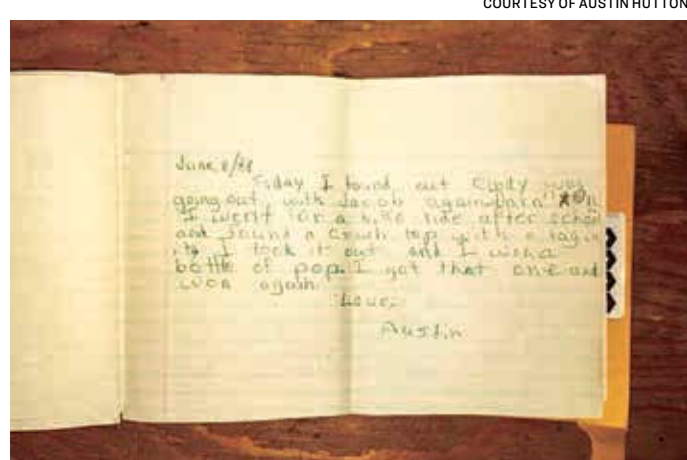 COURTESY OF AUSTIN HUTTON
June 8/88
I found out Cindy was
going out with Jacob again
I went for a bike ride after
and found a Crush top with a tag in
it. I took it out and I
bottle of pop. I got that one and
again.
Love,
Austin